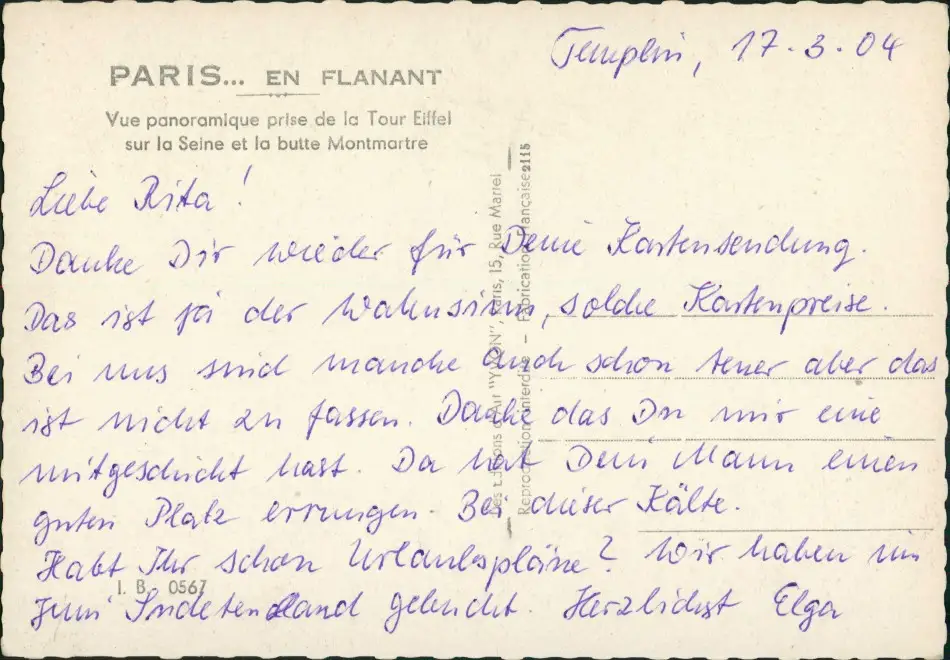 Templin, 17.3.04
PARIS... EN FLANANT
Vue panoramique prise de la Tour Eiffel
sur la Seine et la butte Montmartre
Liebe Rita!
Danke Dir wieder für Deine Kartensendung.
Das ist ja der Wahnsinn, solche Kartenpreise.
Bei uns sind manche auch schon teuer aber das
ist nicht zu fassen. Danke das Du mir eine
mitgeschickt hast. Da hat Dein Mann einen
guten Platz errungen. Bei dieser Kälte.
Habt Ihr schon Urlaubspläne? Wir haben im
Juni Sudetenland gebucht. Herzlichst Elga
I. B. 0567
Les Editions d'Art "YVON", Paris, 15, Rue Martel
Reproduction interdite - Fabrication Française 2115